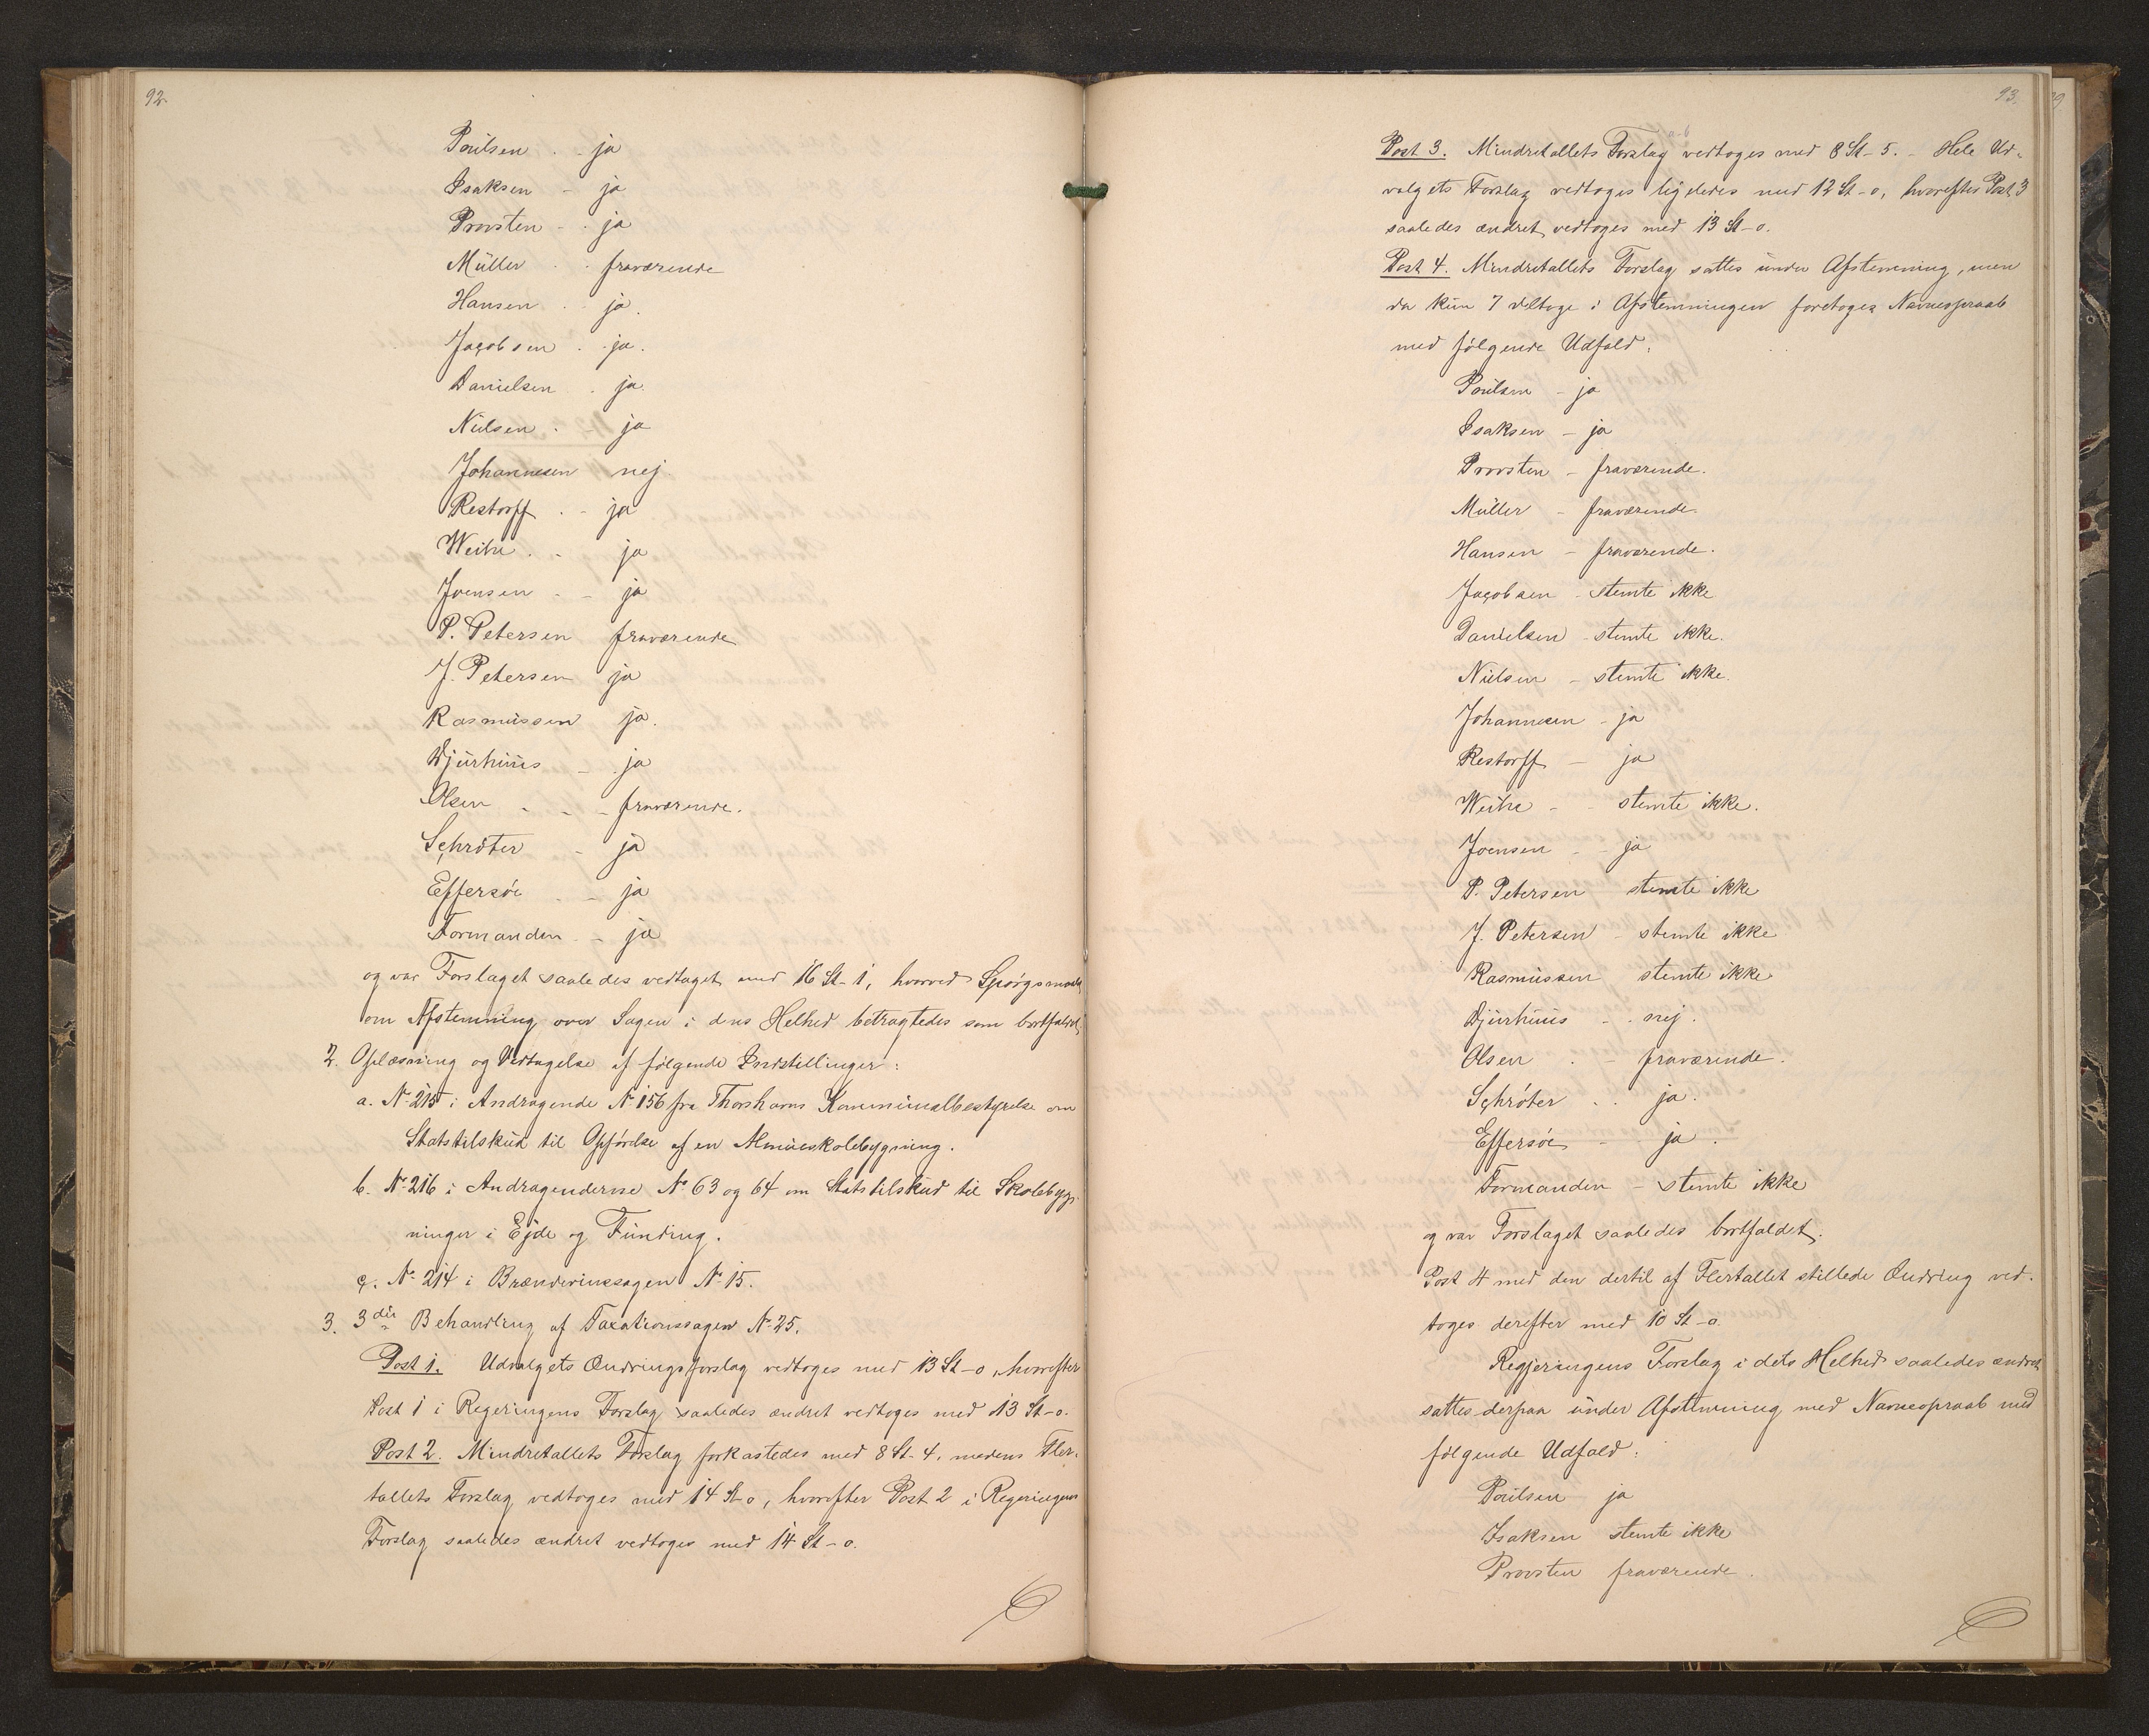 92.
Poulsen . - ja
Isaksen - ja
Provsten - . ja
Müller . . fraværende
Hansen . . ja.
Jacobsen . . ja.
Danielsen . ja.
Nielsen . - ja
Johannesen nej
Restorff . - ja
Weihe . - ja
Joensen - - ja
P. Petersen fraværende
J. Petersen ja
Rasmussen ja.
Djurhuus - ja
Olsen - - - fraværende.
Schrøter - ja
Effersøe . - ja
Formanden - - ja
og var Forslaget saaledes vedtaget med 16 St - 1, hvorved Spørgsmaal
om Afstemning over Sagen i dens Helhed betragtedes som bortfaldet.
2. Oplæsning og Vedtagelse af følgende Indstillinger:
a. No 215 i Andragende No 156 fra Thorshavns Kommunalbestyrelse om
Statstilskud til Opførelse af en Almueskolebygning.
b. No 216 i Andragenderne No 63 og 64 om Statstilskud til Skolebyg-
ninger i Ejde og Funding.
c. No 214 i Brændevinssagen No 15.
3. 3die Behandling af Taxationssagen No 25.
Post 1. Udvalgets Ændringsforslag vedtoges med 13 St - 0, hvorefter
Post 1 i Regeringens Forslag saaledes ændret vedtoges med 13 St - 0.
Post 2. Mindretallets Forslag forkastedes med 8 St - 4, medens Fler-
tallets Forslag vedtoges med 14 St - 0, hvorefter Post 2 i Regeringens
Forslag saaledes ændret vedtoges med 14 St - 0.
93.
a-b
Post 3. Mindretallets Forslag vedtoges med 8 St - 5. - Hele Ud-
valgets Forslag vedtoges ligeledes med 12 St - 0, hvorefter Post 3
saaledes ændret vedtoges med 13 St - 0.
Post 4. Mindretallets Forslag sattes under Afstemning, men
da kun 7 deltoge i Afstemningen foretoges Navneopraab
med følgende Udfald:
Poulsen - ja
Isaksen - ja
Provsten - fraværende.
Müller - fraværende.
Hansen - fraværende.
Jacobsen - stemte ikke
Danielsen - stemte ikke.
Nielsen - stemte ikke.
Johannesen - ja
Restorff - ja
Weihe - - stemte ikke.
Joensen - - ja
P. Petersen stemte ikke
J. Petersen - stemte ikke
Rasmussen stemte ikke
Djurhuus - . nej.
Olsen . - fraværende.
Schrøter . . ja.
Effersøe - ja.
Formanden - stemte ikke
og var Forslaget saaledes bortfaldet.
Post 4 med den dertil af Flertallet stillede Ændring ved-
toges derefter med 10 St - 0.
Regjeringens Forslag i dets Helhed saaledes ændret
sattes derpaa under Afstemning med Navneopraab med
følgende Udfald:
Poulsen ja
Isaksen stemte ikke
Provsten fraværende.